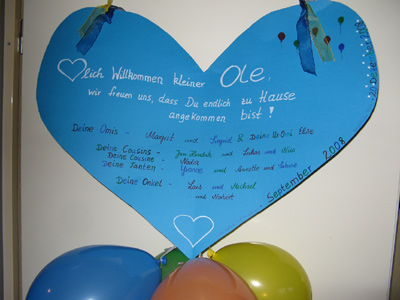 lich Willkommen kleiner Ole,
wir freuen uns, dass Du endlich zu Hause
angekommen bist!
Deine Omis - Margret und Sigrid & Deine UrOmi Else
Deine Cousins - Jan-Hendrik und Lukas und Nico
Deine Cousine - Nadja
Deine Tanten - Yvonne und Annette und Sabine
Deine Onkel - Lars und Michael
und Norbert
September 2008